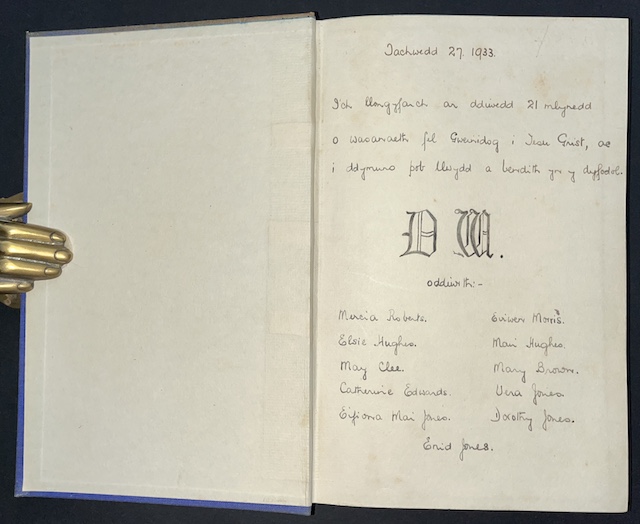 Tachwedd 27. 1933.
I'ch llongyfarch ar ddiwedd 21 mlynedd
o wasanaeth fel Gweinidog i Iesu Grist, ac
i ddymuno pob llwydd a bendith yn y dyfodol.
D W.
oddiwrth:-
Mercia Roberts. Eviwen Morris.
Elsie Hughes. Mair Hughes.
May Clee. Mary Brown.
Catherine Edwards. Vera Jones.
Eifiona Mai Jones. Dorothy Jones.
Enid Jones.